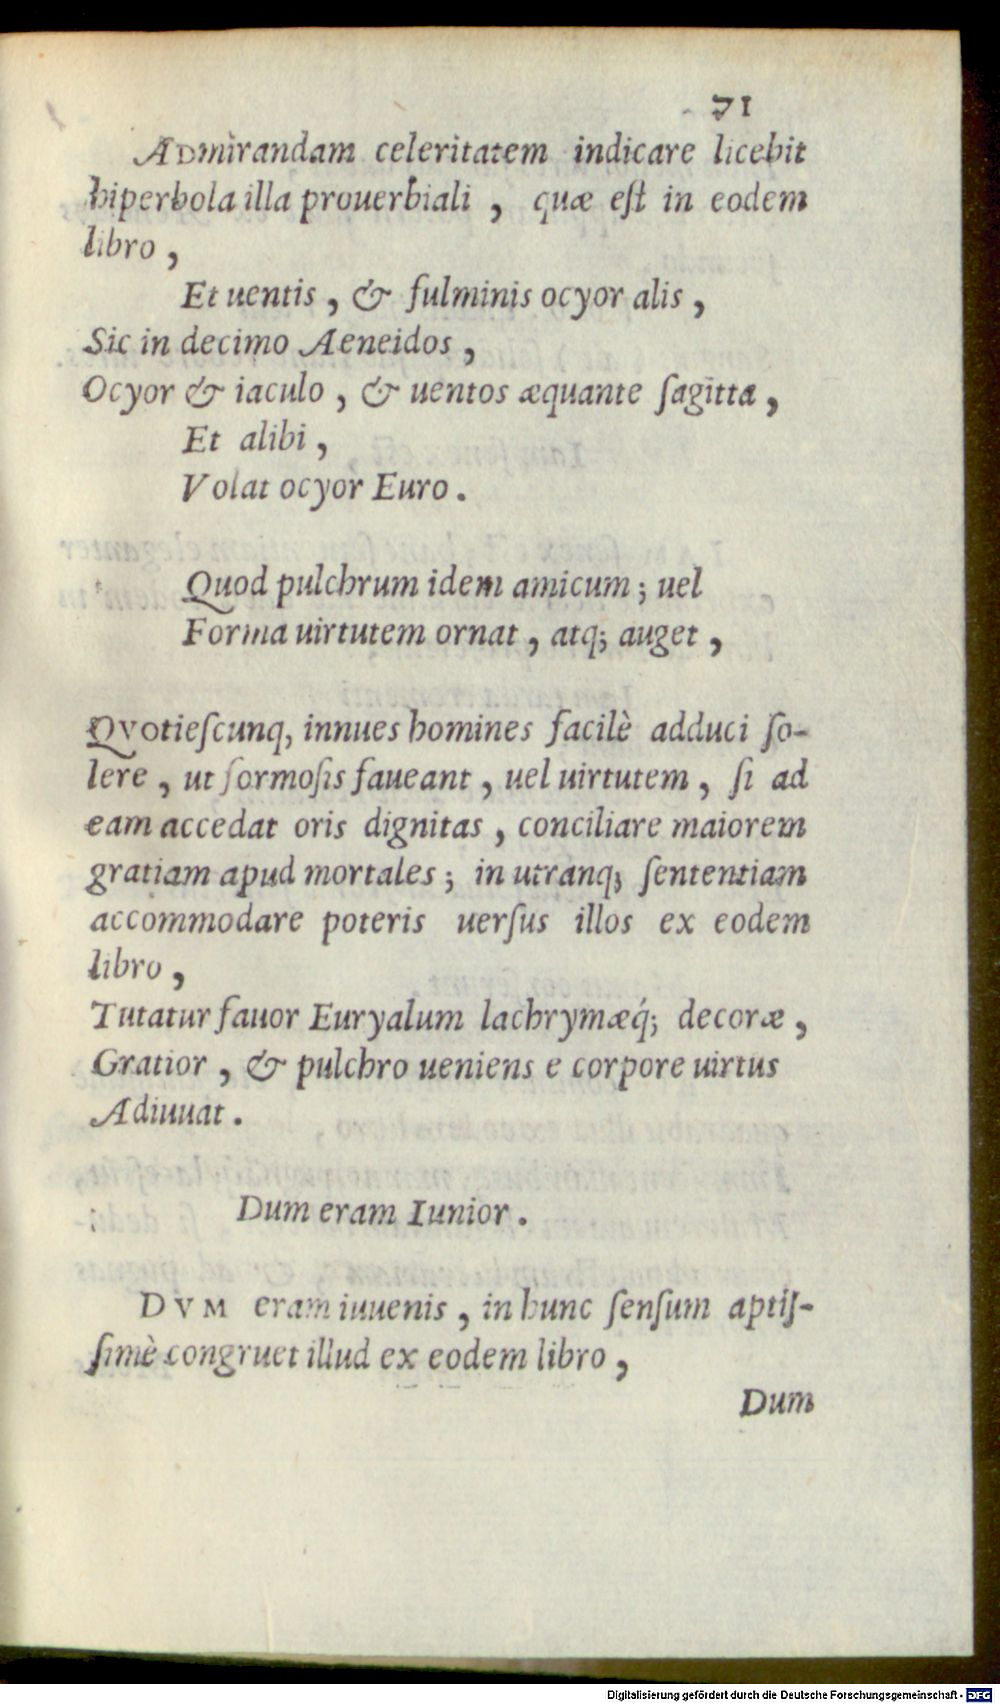 71
ADmirandam celeritatem indicare licebit
hiperbola illa prouerbiali , quæ eſt in eodem
libro ,
Et uentis , & fulminis ocyor alis ,
Sic in decimo Aeneidos ,
Ocyor & iaculo , & uentos æquante ſagitta ,
Et alibi ,
Volat ocyor Euro .
Quod pulchrum idem amicum ; uel
Forma uirtutem ornat , atq; auget ,
QVotieſcunq, innues homines facilè adduci ſo-
lere , ut formoſis faueant , uel uirtutem , ſi ad
eam accedat oris dignitas , conciliare maiorem
gratiam apud mortales ; in utranq; ſententiam
accommodare poteris uerſus illos ex eodem
libro ,
Tutatur fauor Euryalum lachrymæq́; decoræ ,
Gratior , & pulchro ueniens e corpore uirtus
Adiuuat .
Dum eram Iunior .
DVM eram iuuenis , in hunc ſenſum aptiſ-
ſimè congruet illud ex eodem libro ,
Dum
Digitalisierung gefördert durch die Deutsche Forschungsgemeinschaft - DFG